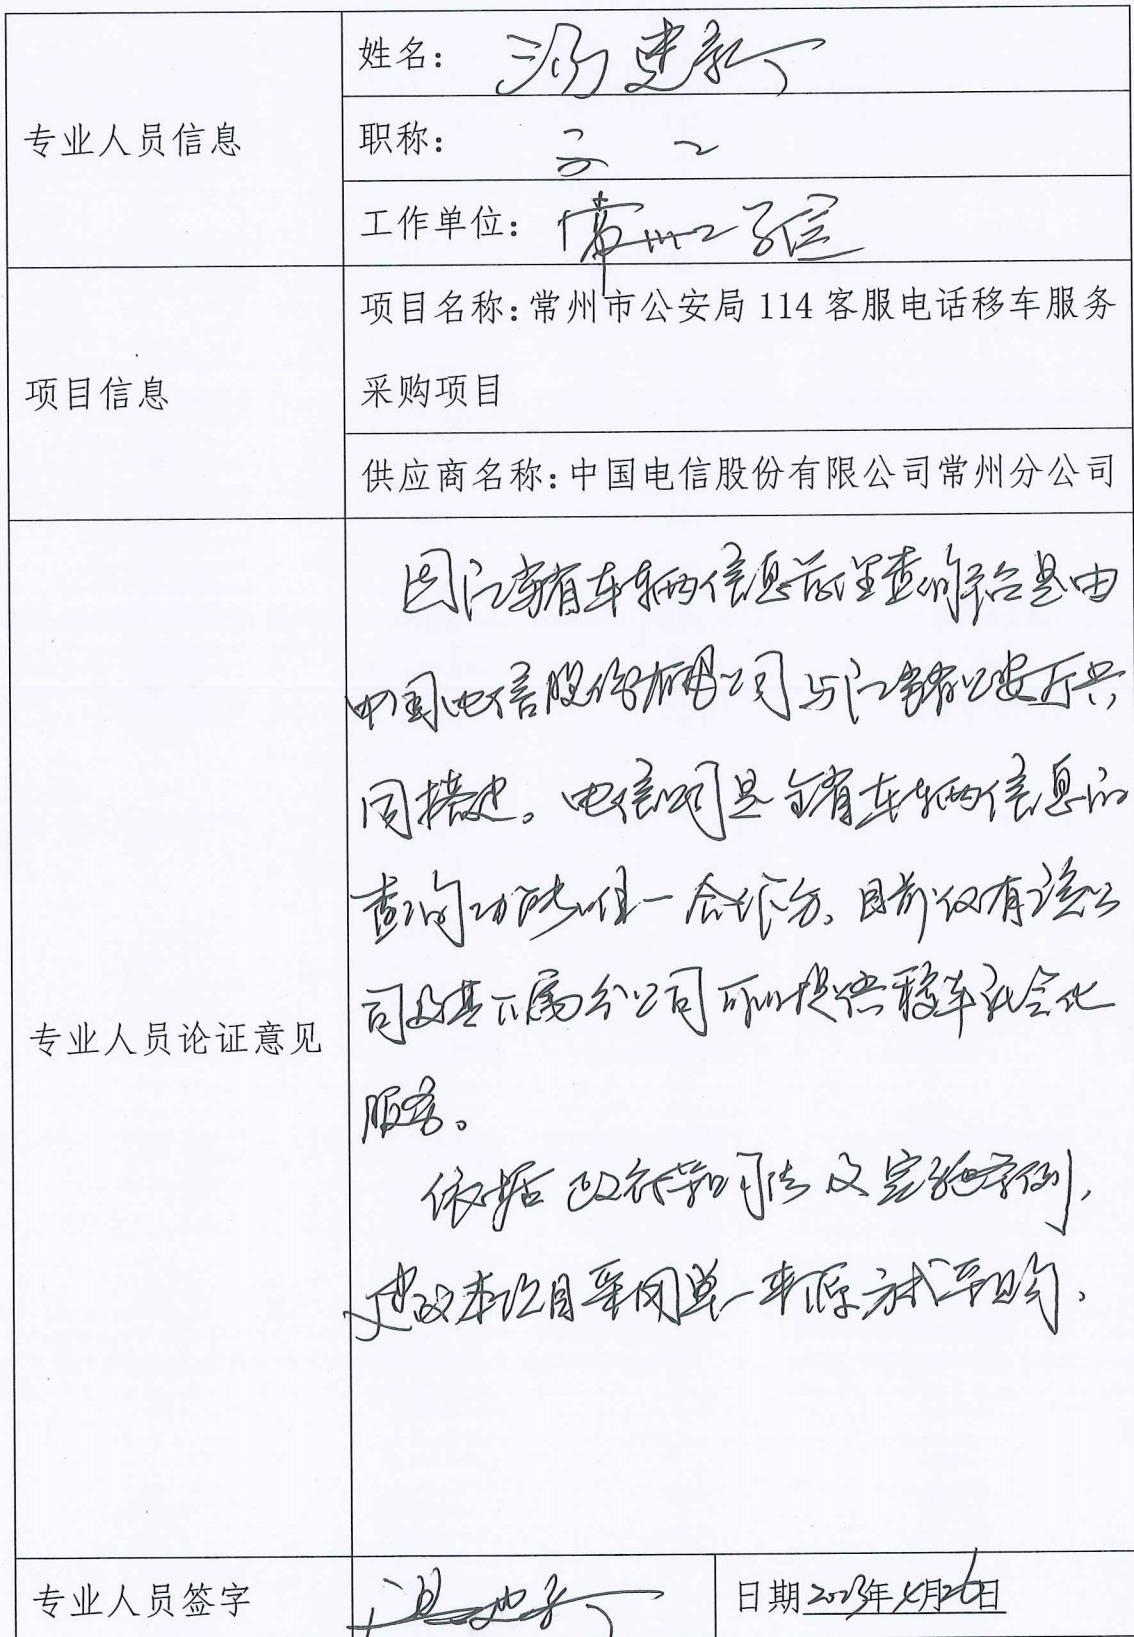 专业人员信息
姓名：汤建新
职称：高工
工作单位：常州工学院
项目信息
项目名称：常州市公安局 114 客服电话移车服务
采购项目
供应商名称：中国电信股份有限公司常州分公司
专业人员论证意见
因江苏省车辆信息管理查询平台是由
中国电信股份有限公司与江苏省公安厅共
同搭建。电信公司是全省车辆信息的
查询功能唯一合作方，目前仅有该公
司及其下属分公司可以提供移车社会化
服务。
依据政府采购法及实施条例，
建议本项目采用单一来源方式采购。
专业人员签字
汤建新
日期2023年4月26日